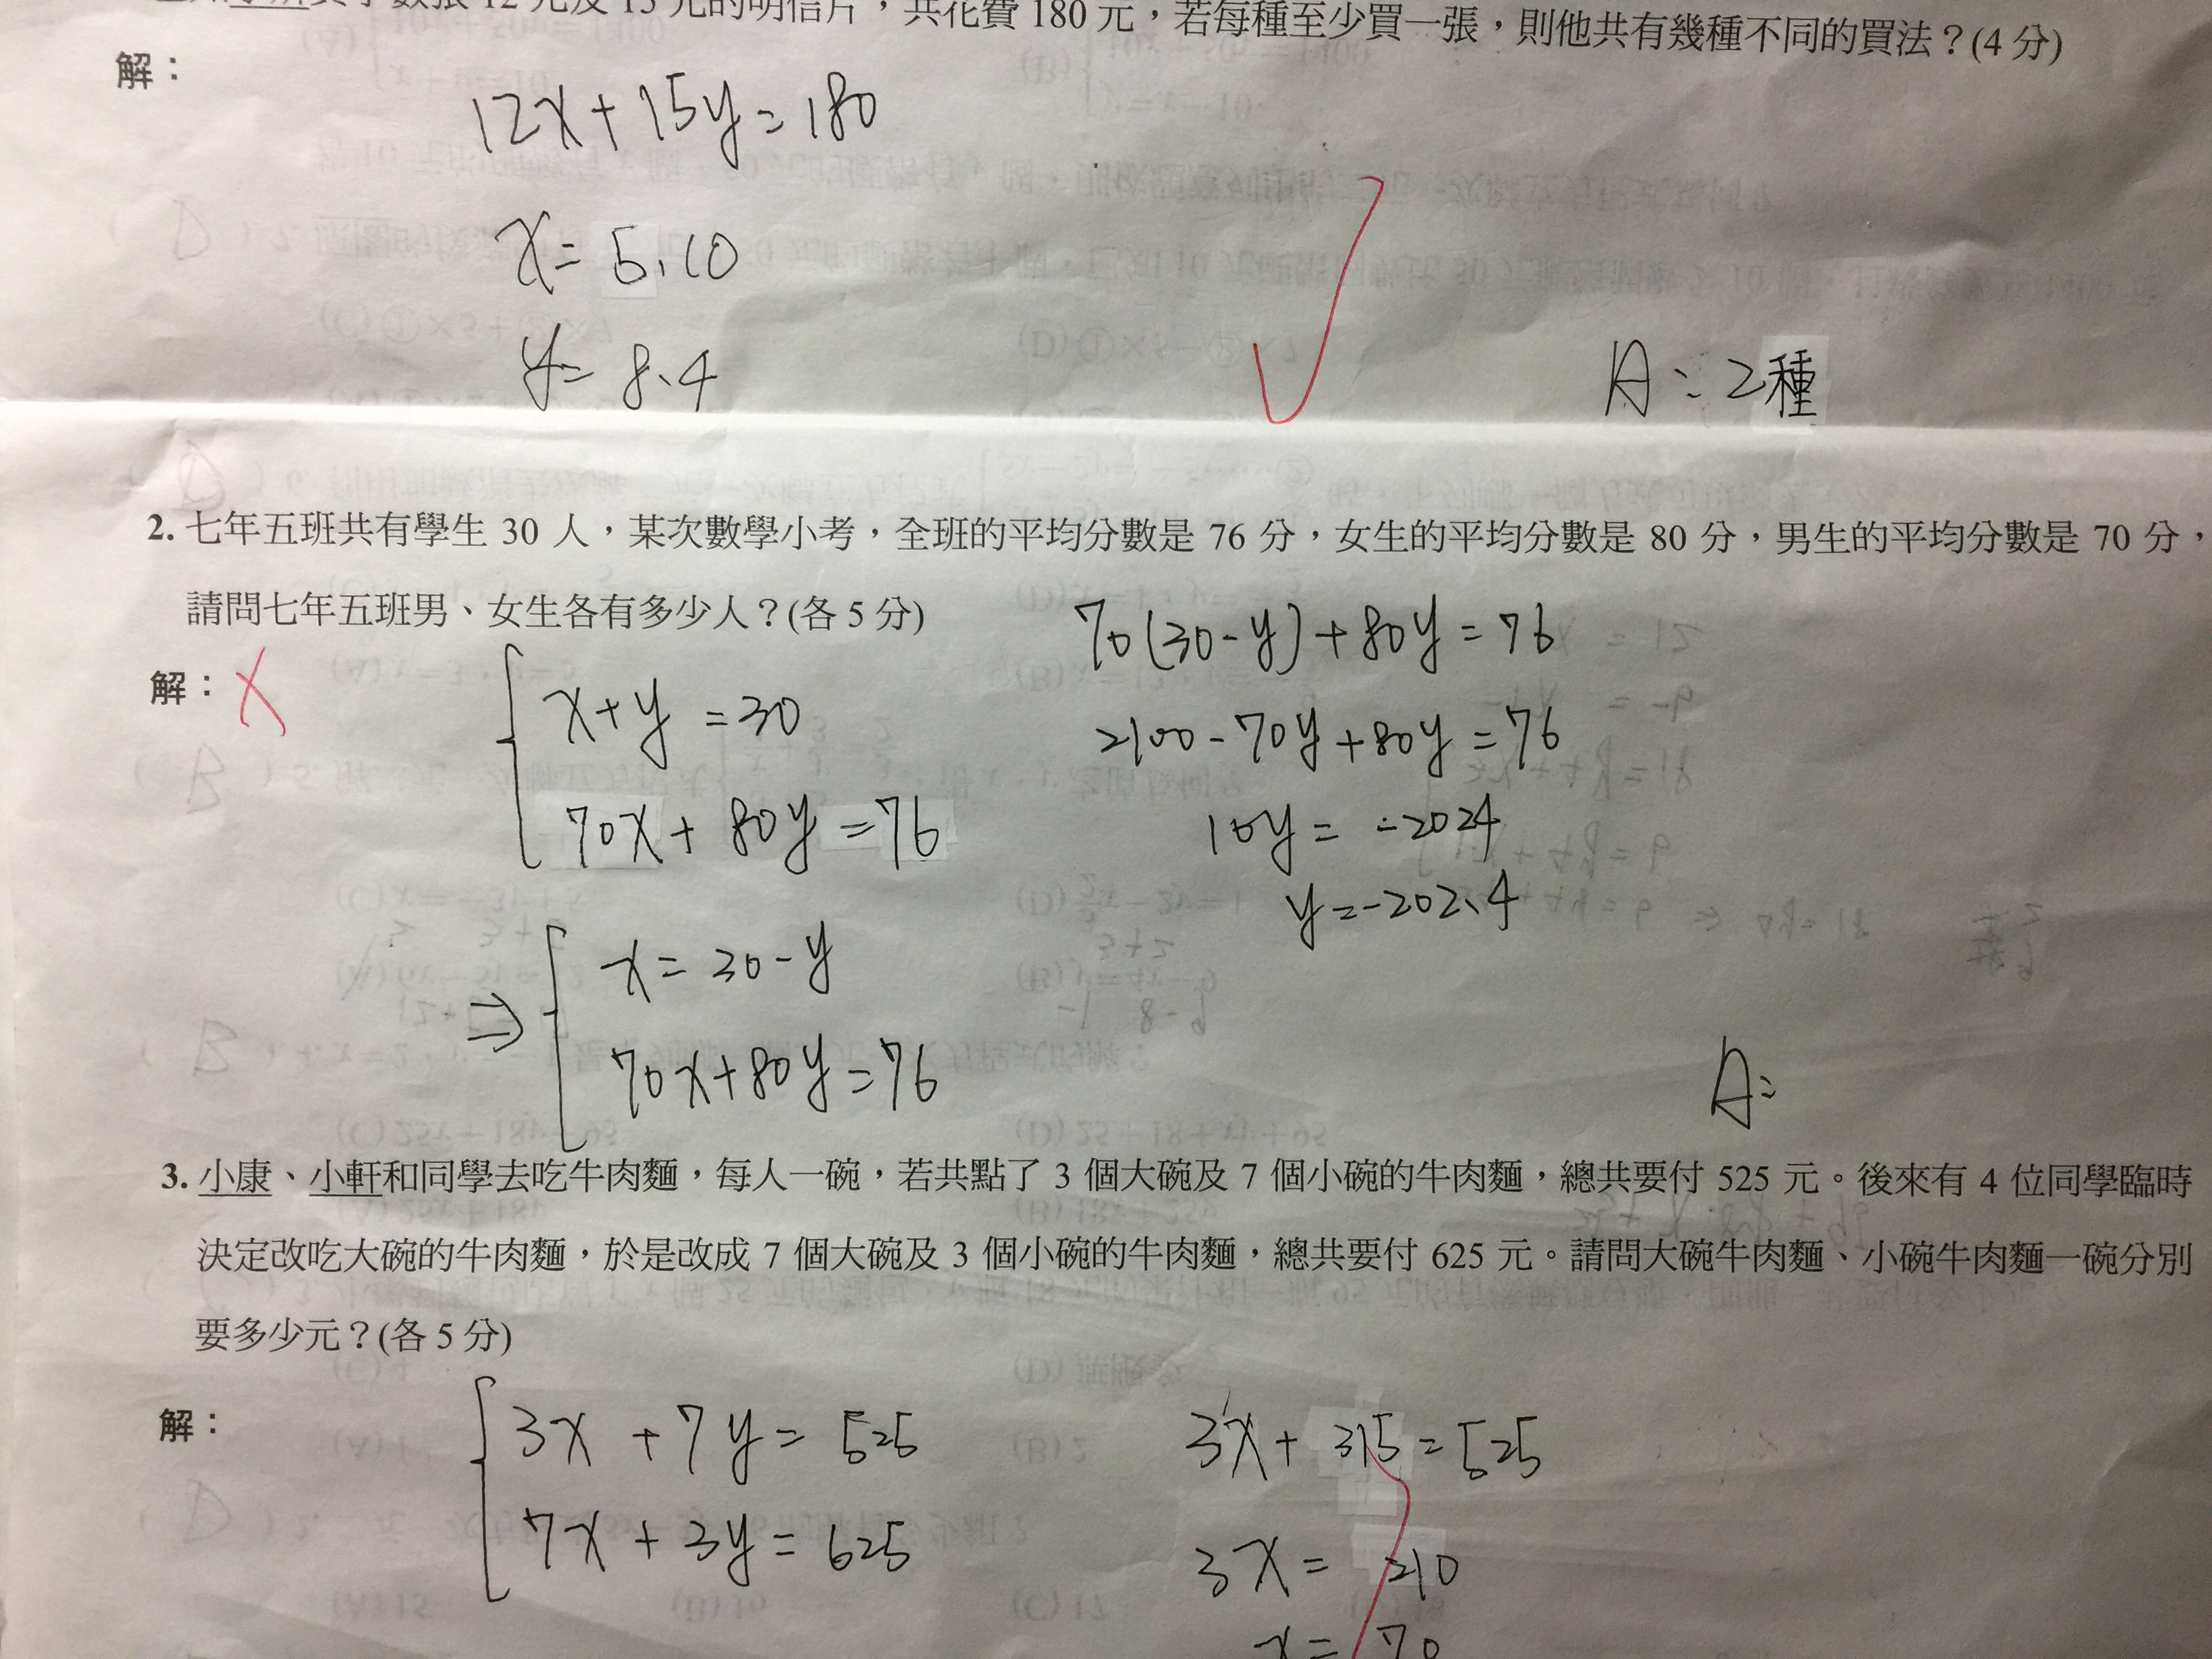 數張 12 元及 15 元的明信片，共花費 180 元，若每種至少買一張，則他共有幾種不同的買法？(4 分)
解：
12x+15y=180
x=5、10
y=8、4
A：2種
2. 七年五班共有學生 30 人，某次數學小考，全班的平均分數是 76 分，女生的平均分數是 80 分，男生的平均分數是 70 分，
請問七年五班男、女生各有多少人？(各 5 分)
解：
x+y=30
70x+80y=76
⇒ x=30-y
70x+80y=76
70(30-y)+80y=76
2100-70y+80y=76
10y=-2024
y=-202.4
A：
3. 小康、小軒和同學去吃牛肉麵，每人一碗，若共點了 3 個大碗及 7 個小碗的牛肉麵，總共要付 525 元。後來有 4 位同學臨時
決定改吃大碗的牛肉麵，於是改成 7 個大碗及 3 個小碗的牛肉麵，總共要付 625 元。請問大碗牛肉麵、小碗牛肉麵一碗分別
要多少元？(各 5 分)
解：
3x+7y=525
7x+3y=625
3x+315=525
3x=210
x=70